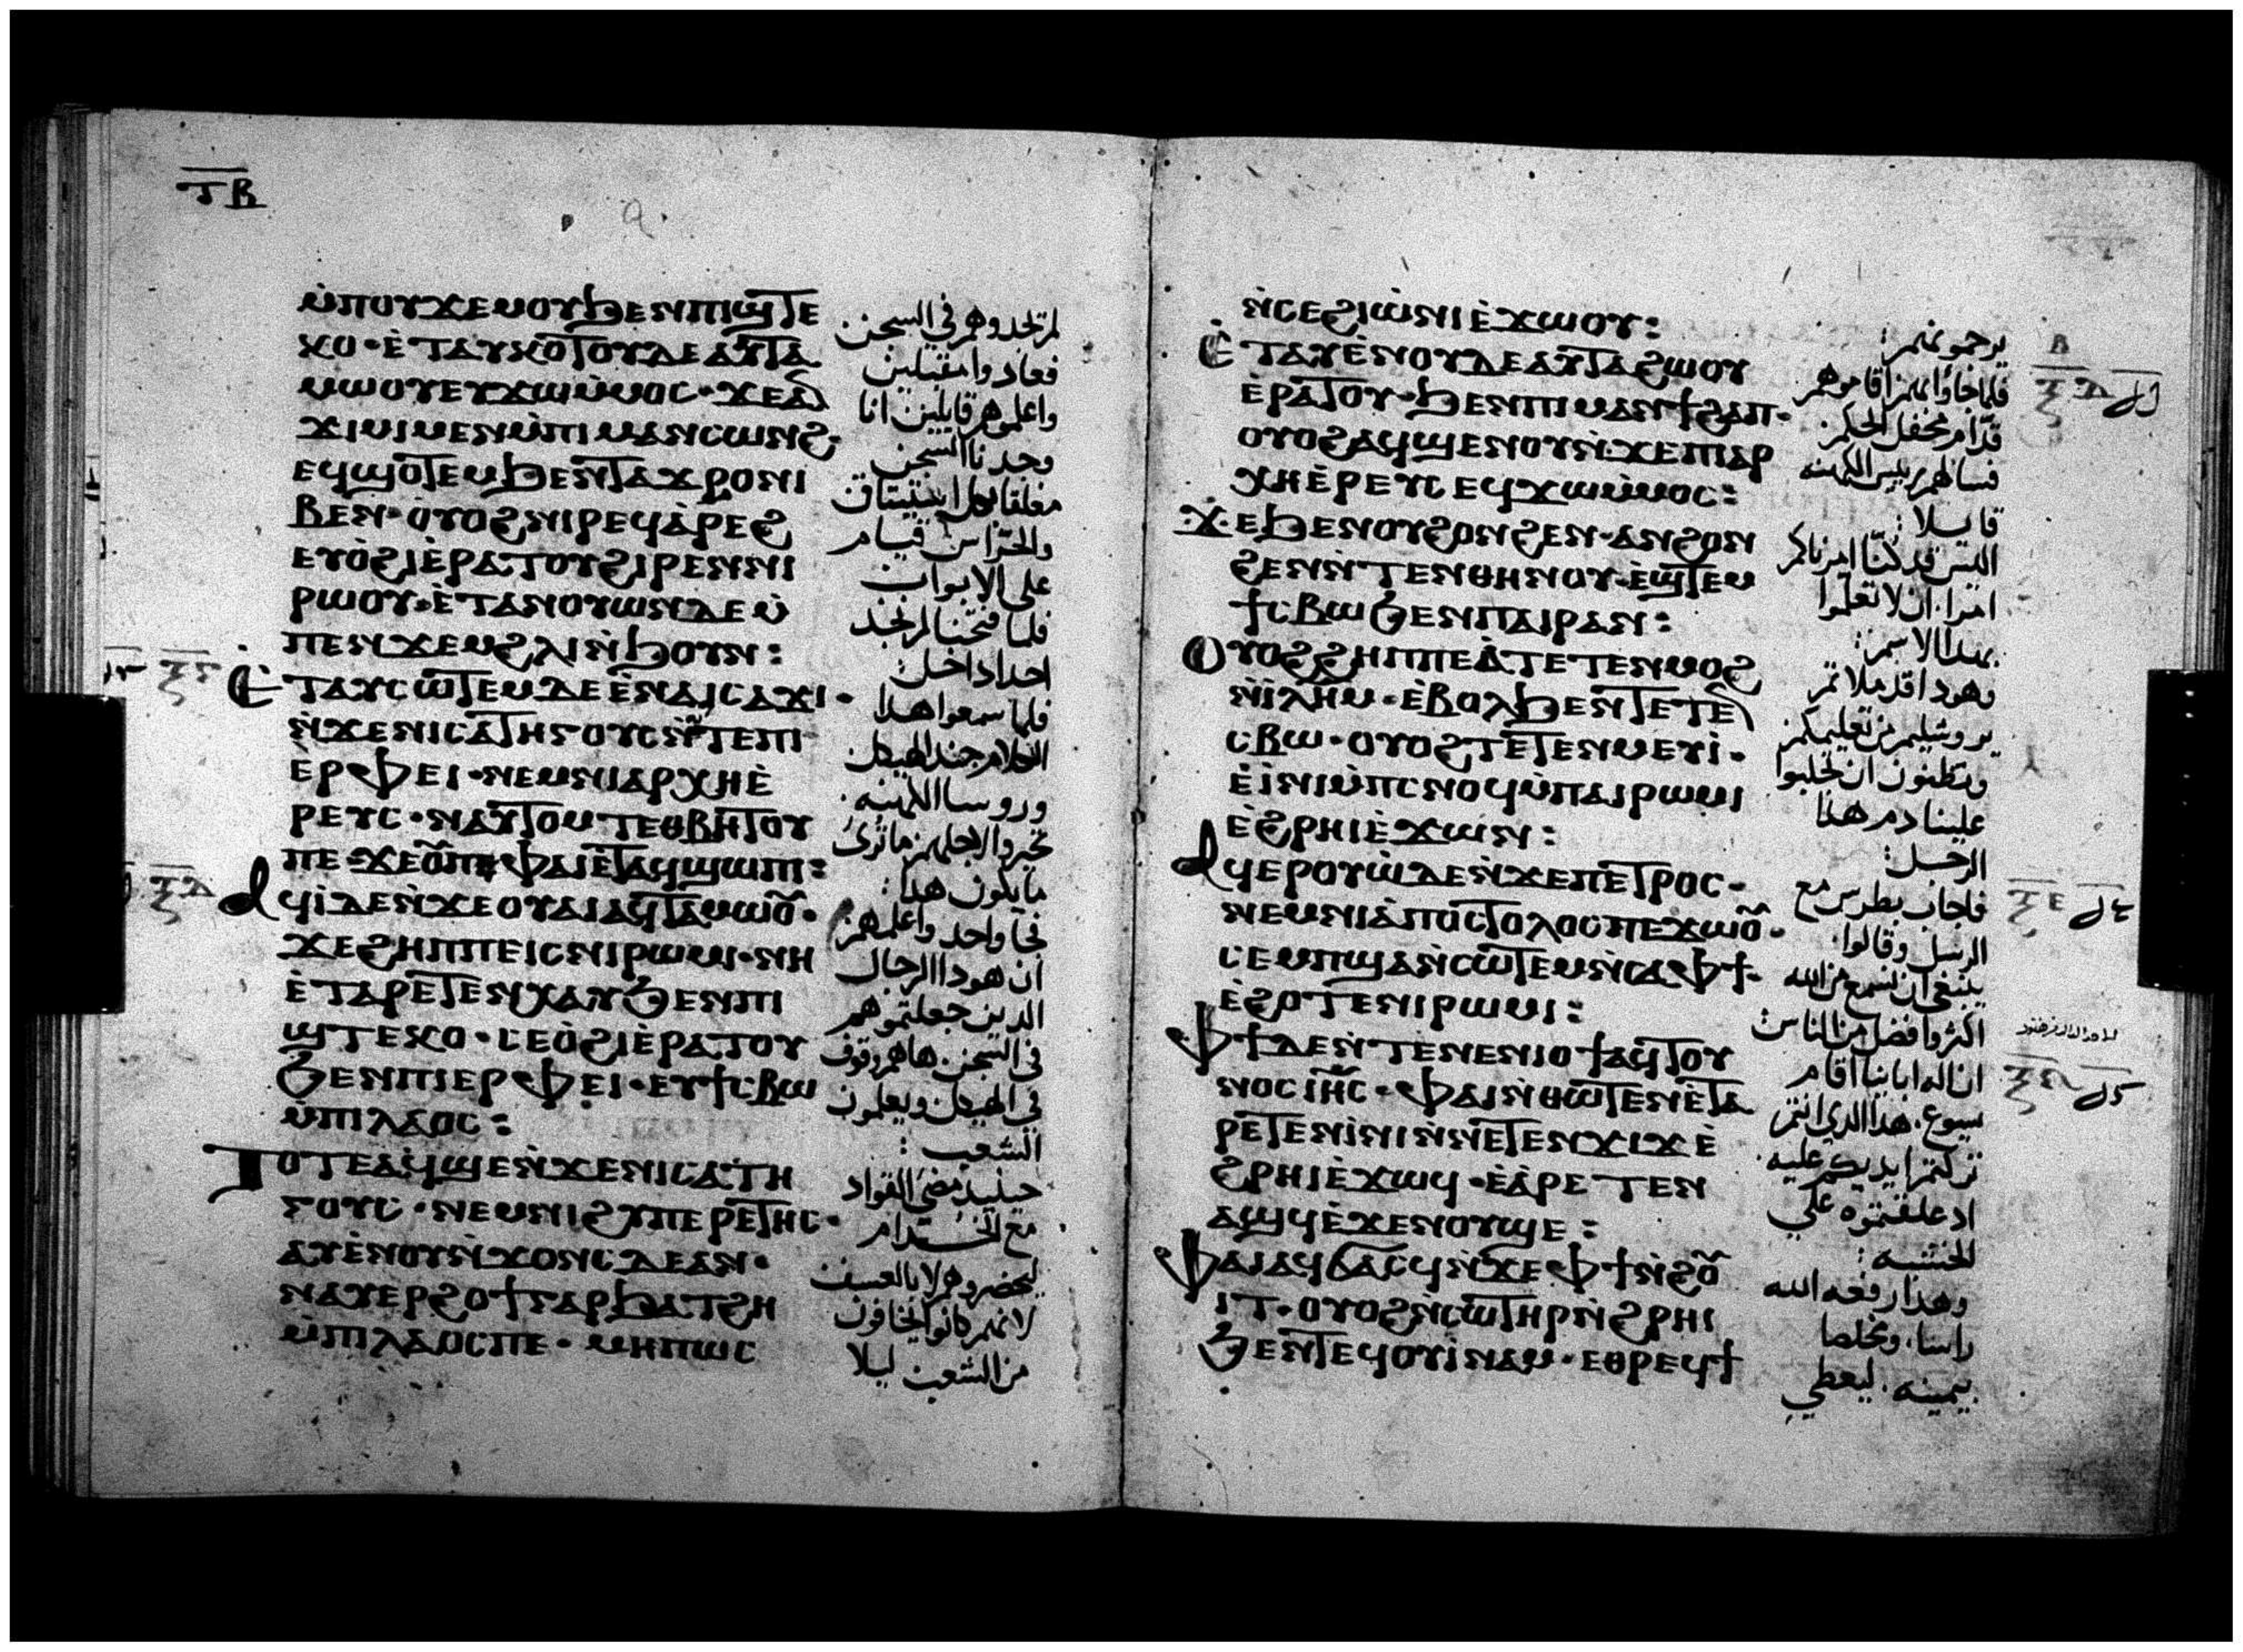 ⲧⲃ
ⲙ̀ⲡⲟⲩϫⲉⲙⲟⲩϧⲉⲛⲡⲓϣⲧⲉ
ⲕⲟ · ⲉ̀ⲧⲁⲩⲕⲟⲧⲟⲩⲇⲉⲁⲩⲧⲁ
ⲙⲱⲟⲩⲉⲩϫⲱⲙ̀ⲙⲟⲥ · ϫⲉⲁⲛ
ϫⲓⲙⲓⲙⲉⲛⲙ̀ⲡⲓⲙⲁⲛⲥⲱⲛϩ ·
ⲉϥϣⲟⲧⲉⲙϧⲉⲛⲧⲁϫⲣⲟⲛⲓ
ⲃⲉⲛ · ⲟⲩⲟϩⲛⲓⲣⲉϥⲁ̀ⲣⲉϩ
ⲉⲩⲟ̀ϩⲓⲉ̀ⲣⲁⲧⲟⲩϩⲓⲣⲉⲛⲛⲓ
ⲣⲱⲟⲩ · ⲉ̀ⲧⲁⲛⲟⲩⲱⲛⲇⲉⲙ̀
ⲡⲉⲛϫⲉⲙϩⲗⲓⲛ̀ϧⲟⲩⲛ :
ⲉ̀ⲧⲁⲩⲥⲱⲧⲉⲙⲇⲉⲉ̀ⲛⲁⲓⲥⲁϫⲓ ·
ⲛ̀ϫⲉⲛⲓⲥⲁⲧⲏⲅⲟⲩⲥⲛ̀ⲧⲉⲡⲓ
ⲉⲣⲫⲉⲓ · ⲛⲉⲙⲛⲓⲁⲣⲭⲏⲉ̀
ⲣⲉⲩⲥ · ⲛⲁⲩⲧⲟⲙⲧⲉⲑⲃⲏⲧⲟⲩ
ⲡⲉ · ϫⲉⲟⲩⲡⲉⲫⲁⲓⲉ̀ⲧⲁϥϣⲱⲡⲓ :
ⲁϥⲓ̀ⲇⲉⲛ̀ϫⲉⲟⲩⲁⲓⲁϥⲧⲁⲙⲱⲟⲩ ·
ϫⲉϩⲏⲡⲡⲉⲓⲥⲛⲓⲣⲱⲙⲓ · ⲛⲏ
ⲉ̀ⲧⲁⲣⲉⲧⲉⲛⲭⲁⲩϧⲉⲛⲡⲓ
ϣⲧⲉⲕⲟ · ⲥⲉⲟ̀ϩⲓⲉ̀ⲣⲁⲧⲟⲩ
ϧⲉⲛⲡⲓⲉⲣⲫⲉⲓ · ⲉⲩϯⲥⲃⲱ
ⲙ̀ⲡⲓⲗⲁⲟⲥ :
ⲧⲟⲧⲉⲁϥϣⲉⲛ̀ϫⲉⲛⲓⲥⲁⲧⲏ
ⲅⲟⲩⲥ · ⲛⲉⲙⲛⲓϩⲩⲡⲉⲣⲉⲧⲏⲥ ·
ⲁⲩⲉ̀ⲛⲟⲩⲛ̀ϫⲟⲛⲥⲇⲉⲁⲛ ·
ⲛⲁⲩⲉⲣϩⲟϯⲅⲁⲣϧⲁⲧϩⲏ
ⲙ̀ⲡⲓⲗⲁⲟⲥⲡⲉ · ⲙⲏⲡⲱⲥ
لم تجدوهم في السجن
فعادوا مقبلين
واعلموهم قايلين انا
وجدنا السجن
مغلقا بكل استيتاق
والحراس قيام
على الابواب
فلما فتحنا لم نجد
احدا داخل :
فلما سمعوا هذا
الكلام جند الهيكل
وروسا الكهنه .
تحيروا لاجلهم ما ترى
ما يكون هذا :
فجا واحد واعلمهم
ان هوذا الرجال
الذين جعلتموهم
في السجن . هاهم وقوف
في الهيكل ويعلمون
الشعب :
حينيذ مضى القواد
مع الخدام
ليحضروهم لا بالعسف
لانهم كانوا يخافون
من الشعب ليلا
ⲛ̀ⲥⲉϩⲓⲱ̀ⲛⲓⲉ̀ϫⲱⲟⲩ :
ⲉ̀ⲧⲁⲩⲉ̀ⲛⲟⲩⲇⲉⲁⲩⲧⲁϩⲱⲟⲩ
ⲉ̀ⲣⲁⲧⲟⲩ · ϧⲉⲛⲡⲓⲙⲁⲛϯϩⲁⲡ ·
ⲟⲩⲟϩⲁϥϣⲉⲛⲟⲩⲛ̀ϫⲉⲡⲓⲁⲣ
ⲭⲏⲉ̀ⲣⲉⲩⲥⲉϥϫⲱⲙ̀ⲙⲟⲥ :
ϫⲉϧⲉⲛⲟⲩϩⲟⲛϩⲉⲛ · ⲁⲛϩⲟⲛ
ϩⲉⲛⲛ̀ⲧⲉⲛⲑⲏⲛⲟⲩ · ⲉ̀ϣⲧⲉⲙ
ϯⲥⲃⲱϧⲉⲛⲡⲁⲓⲣⲁⲛ :
ⲟⲩⲟϩϩⲏⲡⲡⲉⲁ̀ⲧⲉⲧⲉⲛⲙⲟϩ
ⲛ̀ⲓⲗⲏⲙ · ⲉ̀ⲃⲟⲗϧⲉⲛⲧⲉⲧⲉⲛ
ⲥⲃⲱ · ⲟⲩⲟϩⲧⲉⲧⲉⲛⲙⲉⲩⲓ̀ ·
ⲉ̀ⲓ̀ⲛⲓⲙ̀ⲡⲥⲛⲟϥⲙ̀ⲡⲁⲓⲣⲱⲙⲓ
ⲉ̀ϩⲣⲏⲓⲉ̀ϫⲱⲛ :
ⲁϥⲉⲣⲟⲩⲱ̀ⲇⲉⲛ̀ϫⲉⲡⲉⲧⲣⲟⲥ ·
ⲛⲉⲙⲛⲓⲁ̀ⲡⲟⲥⲧⲟⲗⲟⲥⲡⲉϫⲱⲟⲩ ·
ⲥⲉⲙⲡϣⲁⲛ̀ⲥⲱⲧⲉⲙⲛ̀ⲥⲁⲫϯ ·
ⲉ̀ϩⲟⲧⲉⲛⲓⲣⲱⲙⲓ :
ⲫϯⲇⲉⲛ̀ⲧⲉⲛⲉⲛⲓⲟϯⲁϥⲧⲟⲩ
ⲛⲟⲥⲓⲏⲥ · ⲫⲁⲓⲛ̀ⲑⲱⲧⲉⲛⲉ̀ⲧⲁ
ⲣⲉⲧⲉⲛⲓ̀ⲛⲓⲛ̀ⲛⲉⲧⲉⲛϫⲓϫⲉ̀
ϩⲣⲏⲓⲉ̀ϫⲱϥ · ⲉⲁ̀ⲣⲉⲧⲉⲛ
ⲁϣϥⲉ̀ϫⲉⲛⲟⲩϣⲉ :
ⲫⲁⲓⲁϥϭⲁⲥϥⲛ̀ϫⲉⲫϯⲛ̀ϩⲟⲩ
ⲓⲧ · ⲟⲩⲟϩⲛ̀ⲥⲱⲧⲏⲣⲛ̀ϩⲣⲏⲓ
ϧⲉⲛⲧⲉϥⲟⲩⲓ̀ⲛⲁⲙ · ⲉⲑⲣⲉϥϯ
يرجمونهم :
فلما جاوا بهم اقاموهم
قدام محفل الحكم
فسالهم رييس الكهنه
قايلا :
اليس قد كنا امرناكم
امرا . ان لا تعلموا
بهذا الاسم :
وهوذا قد ملاتم
يروشليم من تعليمكم
وتظنون ان تجلبوا
علينا دم هذا
الرجل :
فاجاب بطرس مع
الرسل وقالوا .
ينبغي ان نسمع من الله
اكثر وافضل من الناس
ان اله ابايناا اقام
يسوع . هذا الذي انتم
تركتم ايديكم عليه .
اذ علقتموه على
الخشبه :
وهذا رفعه الله
راسا . ومخلصا
بيمينه . ليعطي